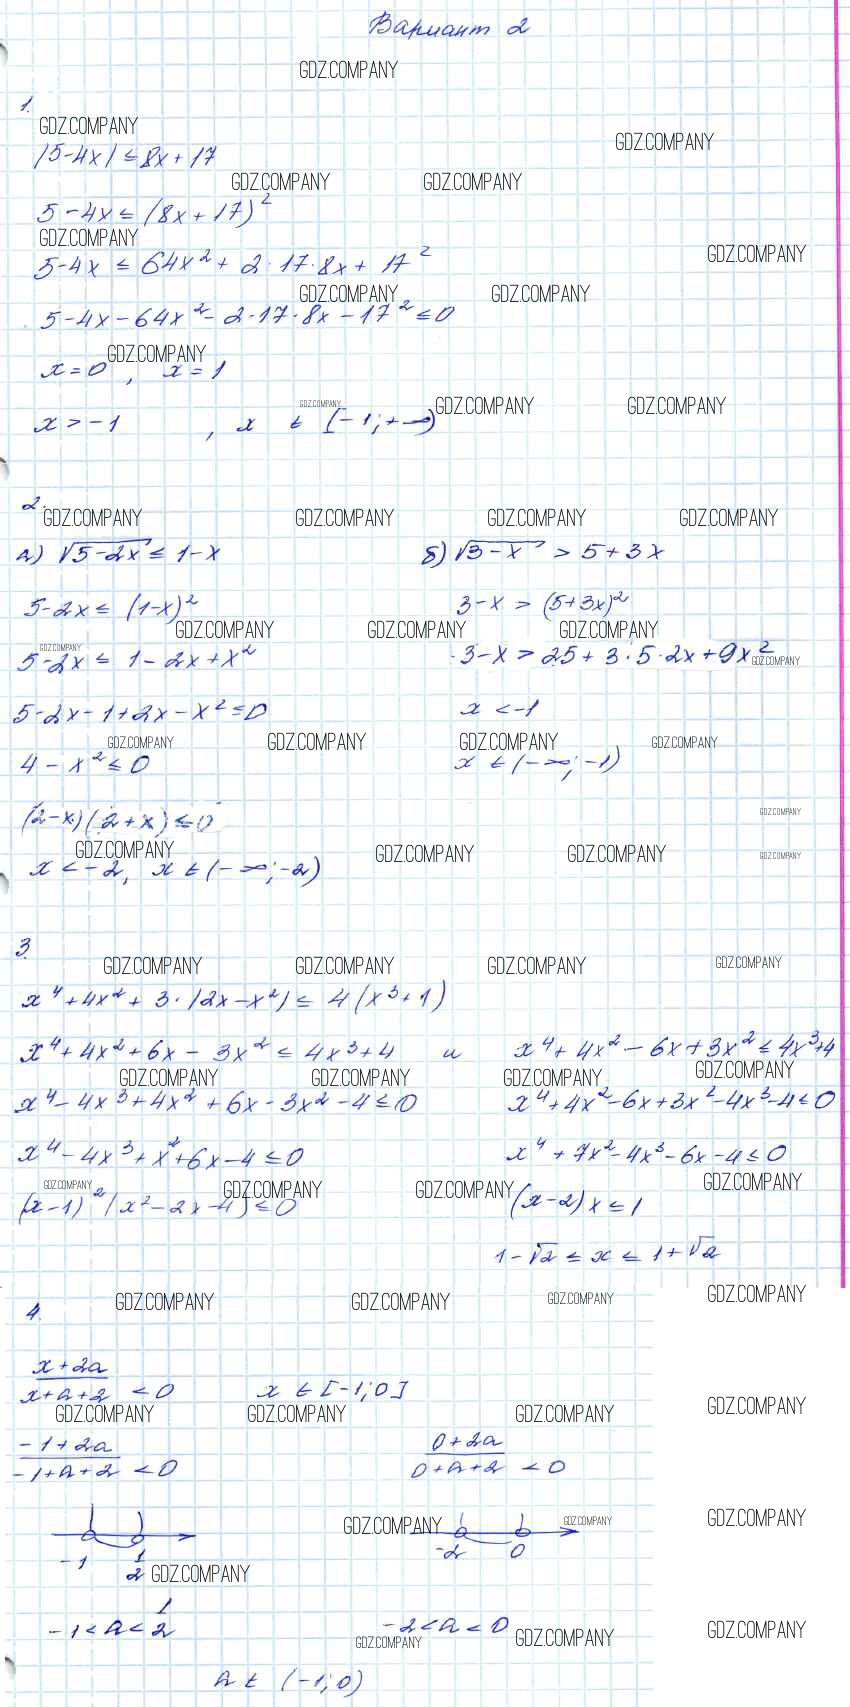 Вариант 2
GDZ.COMPANY
1.
GDZ.COMPANY GDZ.COMPANY
|5-4x| ≤ 8x+17
GDZ.COMPANY GDZ.COMPANY
5-4x ≤ (8x+17)²
GDZ.COMPANY GDZ.COMPANY
5-4x ≤ 64x²+ 2·17·8x+ 17²
GDZ.COMPANY GDZ.COMPANY
5-4x-64x²-2·17·8x-17² ≤ 0
GDZ.COMPANY
x=0, x=1
GDZ.COMPANY GDZ.COMPANY GDZ.COMPANY
x>-1, x ∈ [-1;+∞)
2.
GDZ.COMPANY GDZ.COMPANY GDZ.COMPANY GDZ.COMPANY
а) √5-2x ≤ 1-x б) √3-x > 5+3x
5-2x ≤ (1-x)² 3-x > (5+3x)²
GDZ.COMPANY GDZ.COMPANY GDZ.COMPANY GDZ.COMPANY
5-2x ≤ 1-2x+x² 3-x > 25+3·5·2x+9x²
GDZ.COMPANY
5-2x-1+2x-x² ≤ 0 x<-1
GDZ.COMPANY GDZ.COMPANY GDZ.COMPANY GDZ.COMPANY
4-x² ≤ 0 x ∈ (-∞;-1)
GDZ.COMPANY
(2-x)(2+x) ≤ 0
GDZ.COMPANY GDZ.COMPANY GDZ.COMPANY GDZ.COMPANY
x<-2, x ∈ (-∞;-2)
3.
GDZ.COMPANY GDZ.COMPANY GDZ.COMPANY GDZ.COMPANY
x⁴+4x²+3·|2x-x²| ≤ 4(x³+1)
x⁴+4x²+6x-3x² ≤ 4x³+4 и x⁴+4x²-6x+3x² ≤ 4x³+4
GDZ.COMPANY GDZ.COMPANY GDZ.COMPANY GDZ.COMPANY
x⁴-4x³+4x²+6x-3x²-4 ≤ 0 x⁴+4x²-6x+3x²-4x³-4 ≤ 0
x⁴-4x³+x²+6x-4 ≤ 0 x⁴+7x²-4x³-6x-4 ≤ 0
GDZ.COMPANY GDZ.COMPANY GDZ.COMPANY GDZ.COMPANY
(x-1)²(x²-2x-4) ≤ 0 (x-2)x ≤ 1
1-√2 ≤ x ≤ 1+√2
GDZ.COMPANY GDZ.COMPANY GDZ.COMPANY GDZ.COMPANY
4.
x+2a
x+a+2 <0 x ∈ [-1;0]
GDZ.COMPANY GDZ.COMPANY GDZ.COMPANY GDZ.COMPANY
-1+2a 0+2a
-1+a+2 <0 0+a+2 <0
GDZ.COMPANY GDZ.COMPANY GDZ.COMPANY
-1 1 -2 0
2 GDZ.COMPANY
1
-1<a<2 -2<a<0
GDZ.COMPANY GDZ.COMPANY GDZ.COMPANY
a ∈ (-1;0)